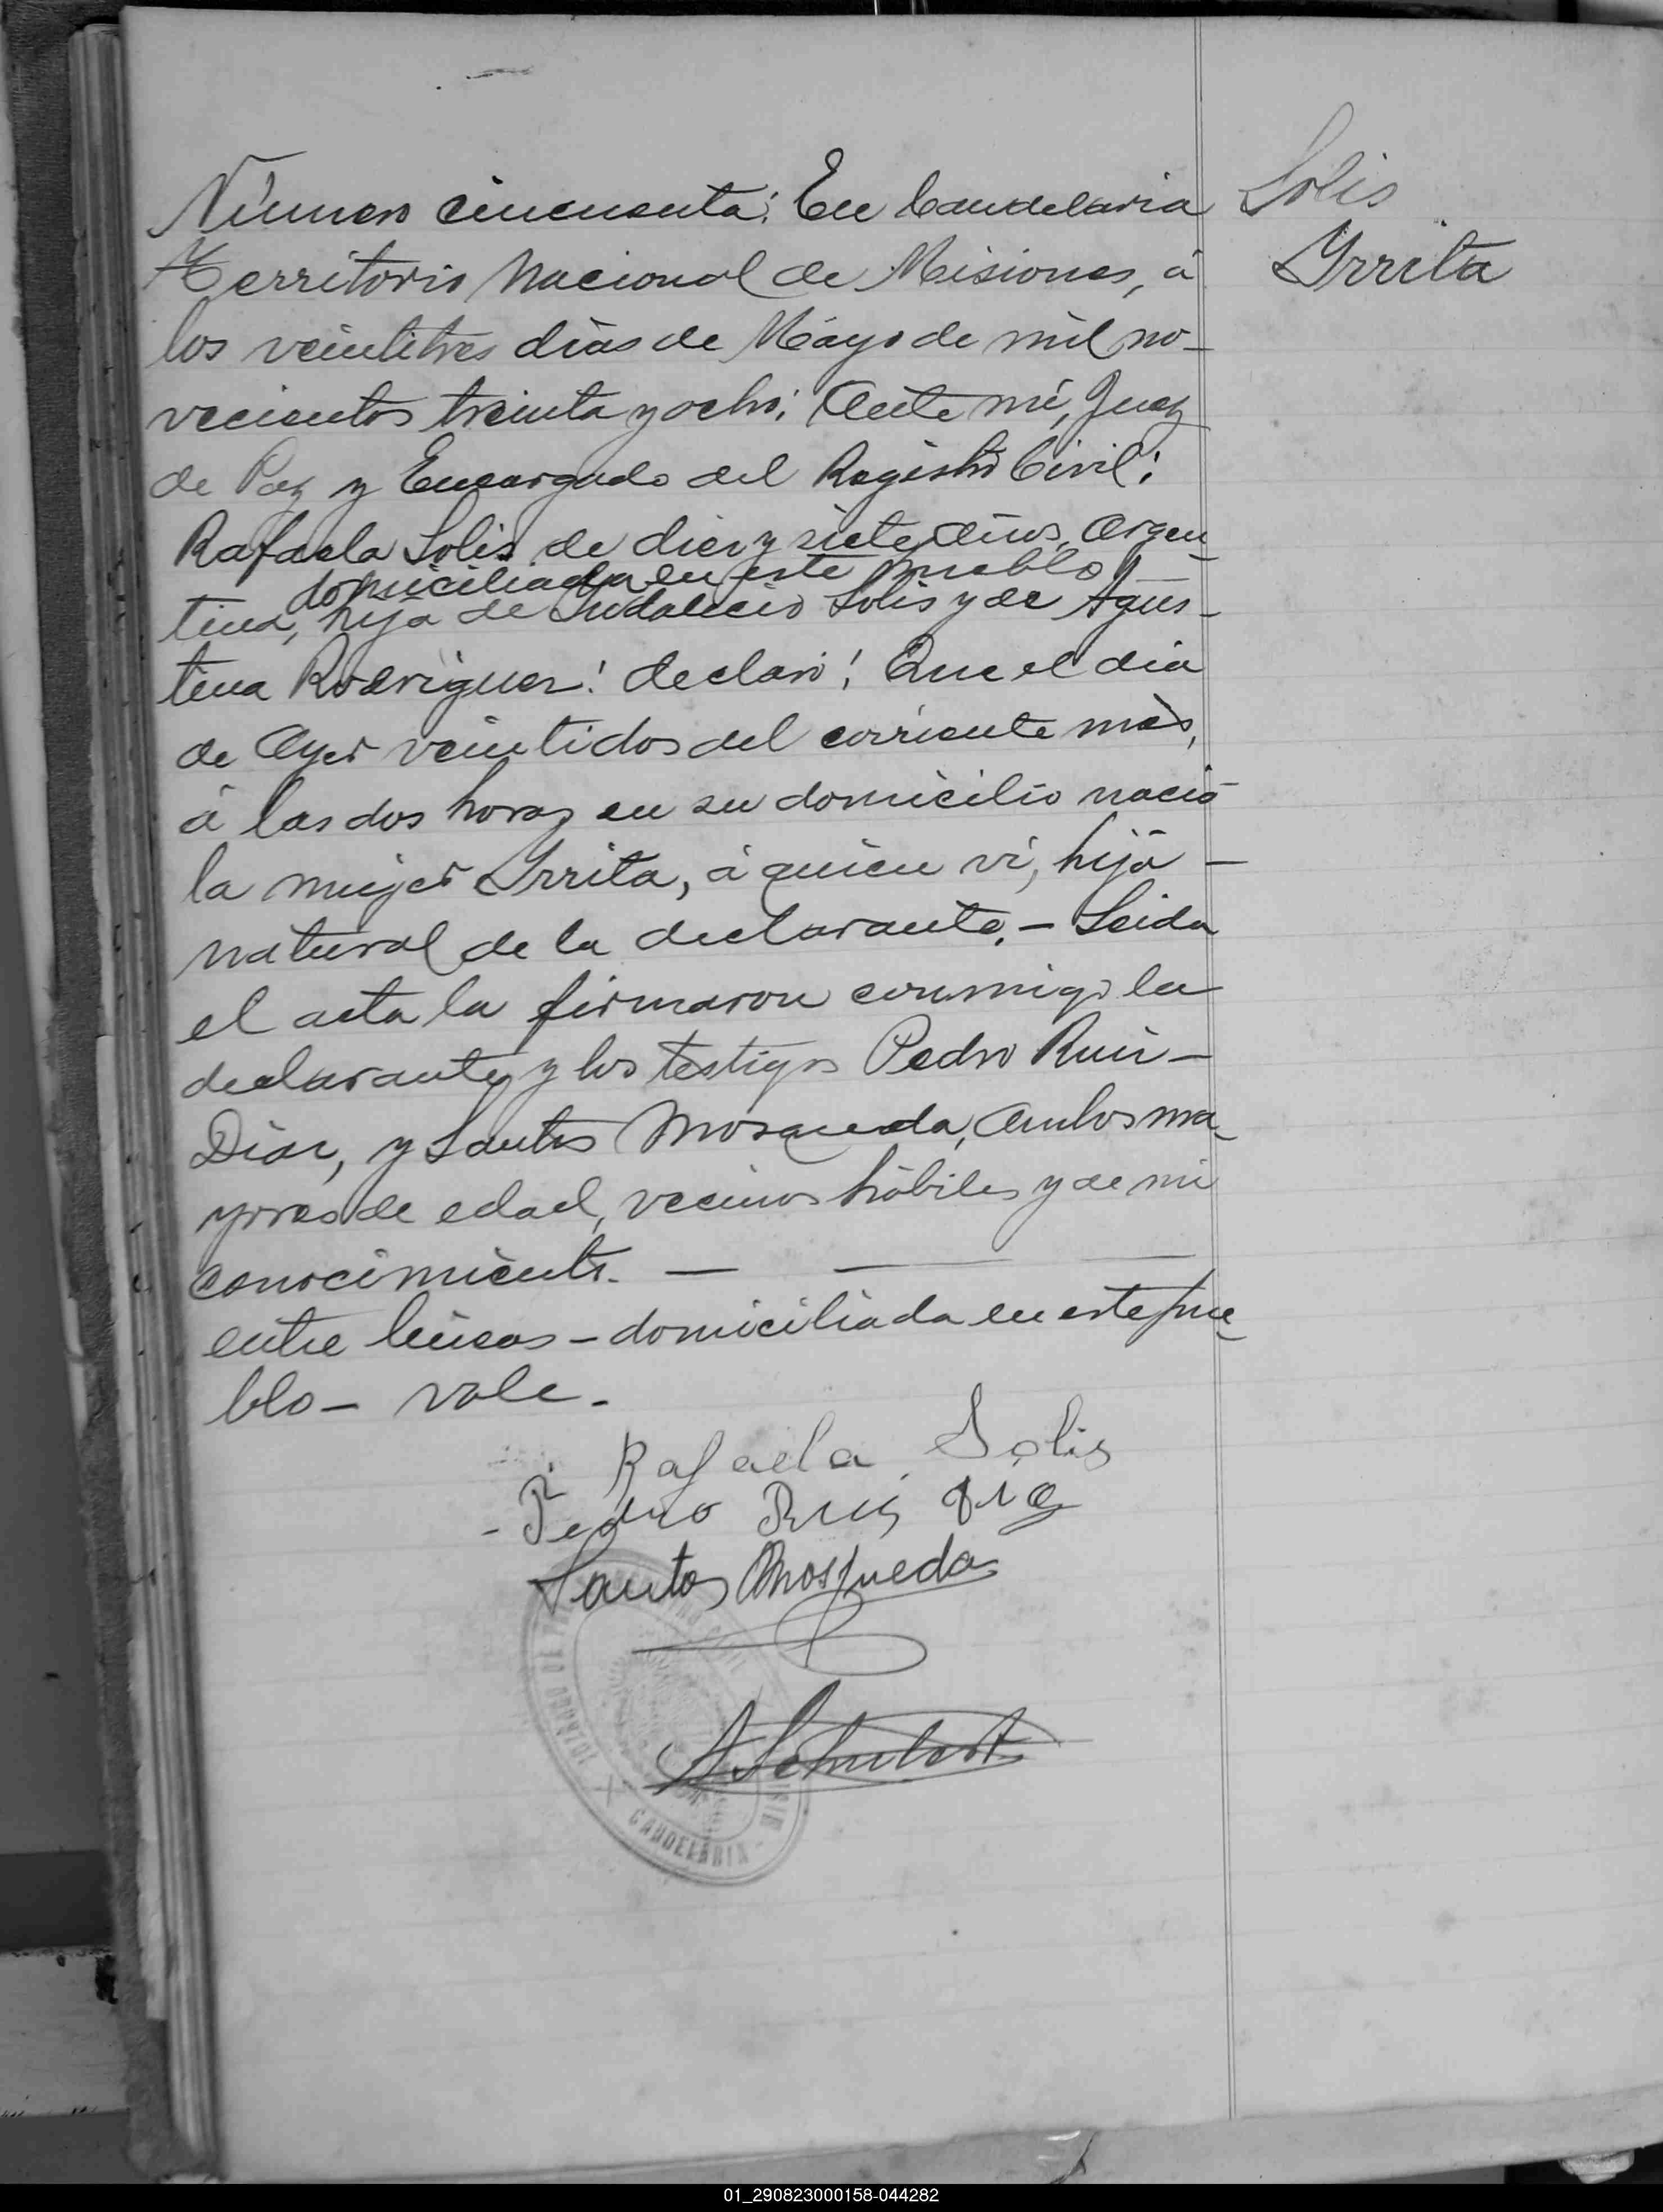 Número cincuenta: En Candelaria
Territorio Nacional de Misiones, á
los veintitres dias de Mayo de mil no-
vecientos treinta y ocho: Ante mi, Juez
de Paz y Encargado del Registro Civil:
Rafaela Solis de diez y siete años, Argen-
domiciliada en este pueblo
tina, hija de Indalecio Solis y de Agus-
tina Rodriguez: declaró: Que el dia
de Ayer veintidos del corriente mes,
á las dos horas en su domicilio nació
la mujer Yrrita, á quien vi, hija -
natural de la declarante. - Leida
el acta la firmaron conmigo la
declarante y los testigos Pedro Ruiz -
Diaz, y Santos Mosqueda, Ambos ma-
yores de edad, vecinos hábiles y de mi
conocimiento. - - -
entre lineas - domiciliada en este pue-
blo - vale -
Solis
Yrrita
Rafaela Solis
Pedro Ruiz
Santos Mosqueda
A Schubert
CANDELARIA
01_290823000158-044282